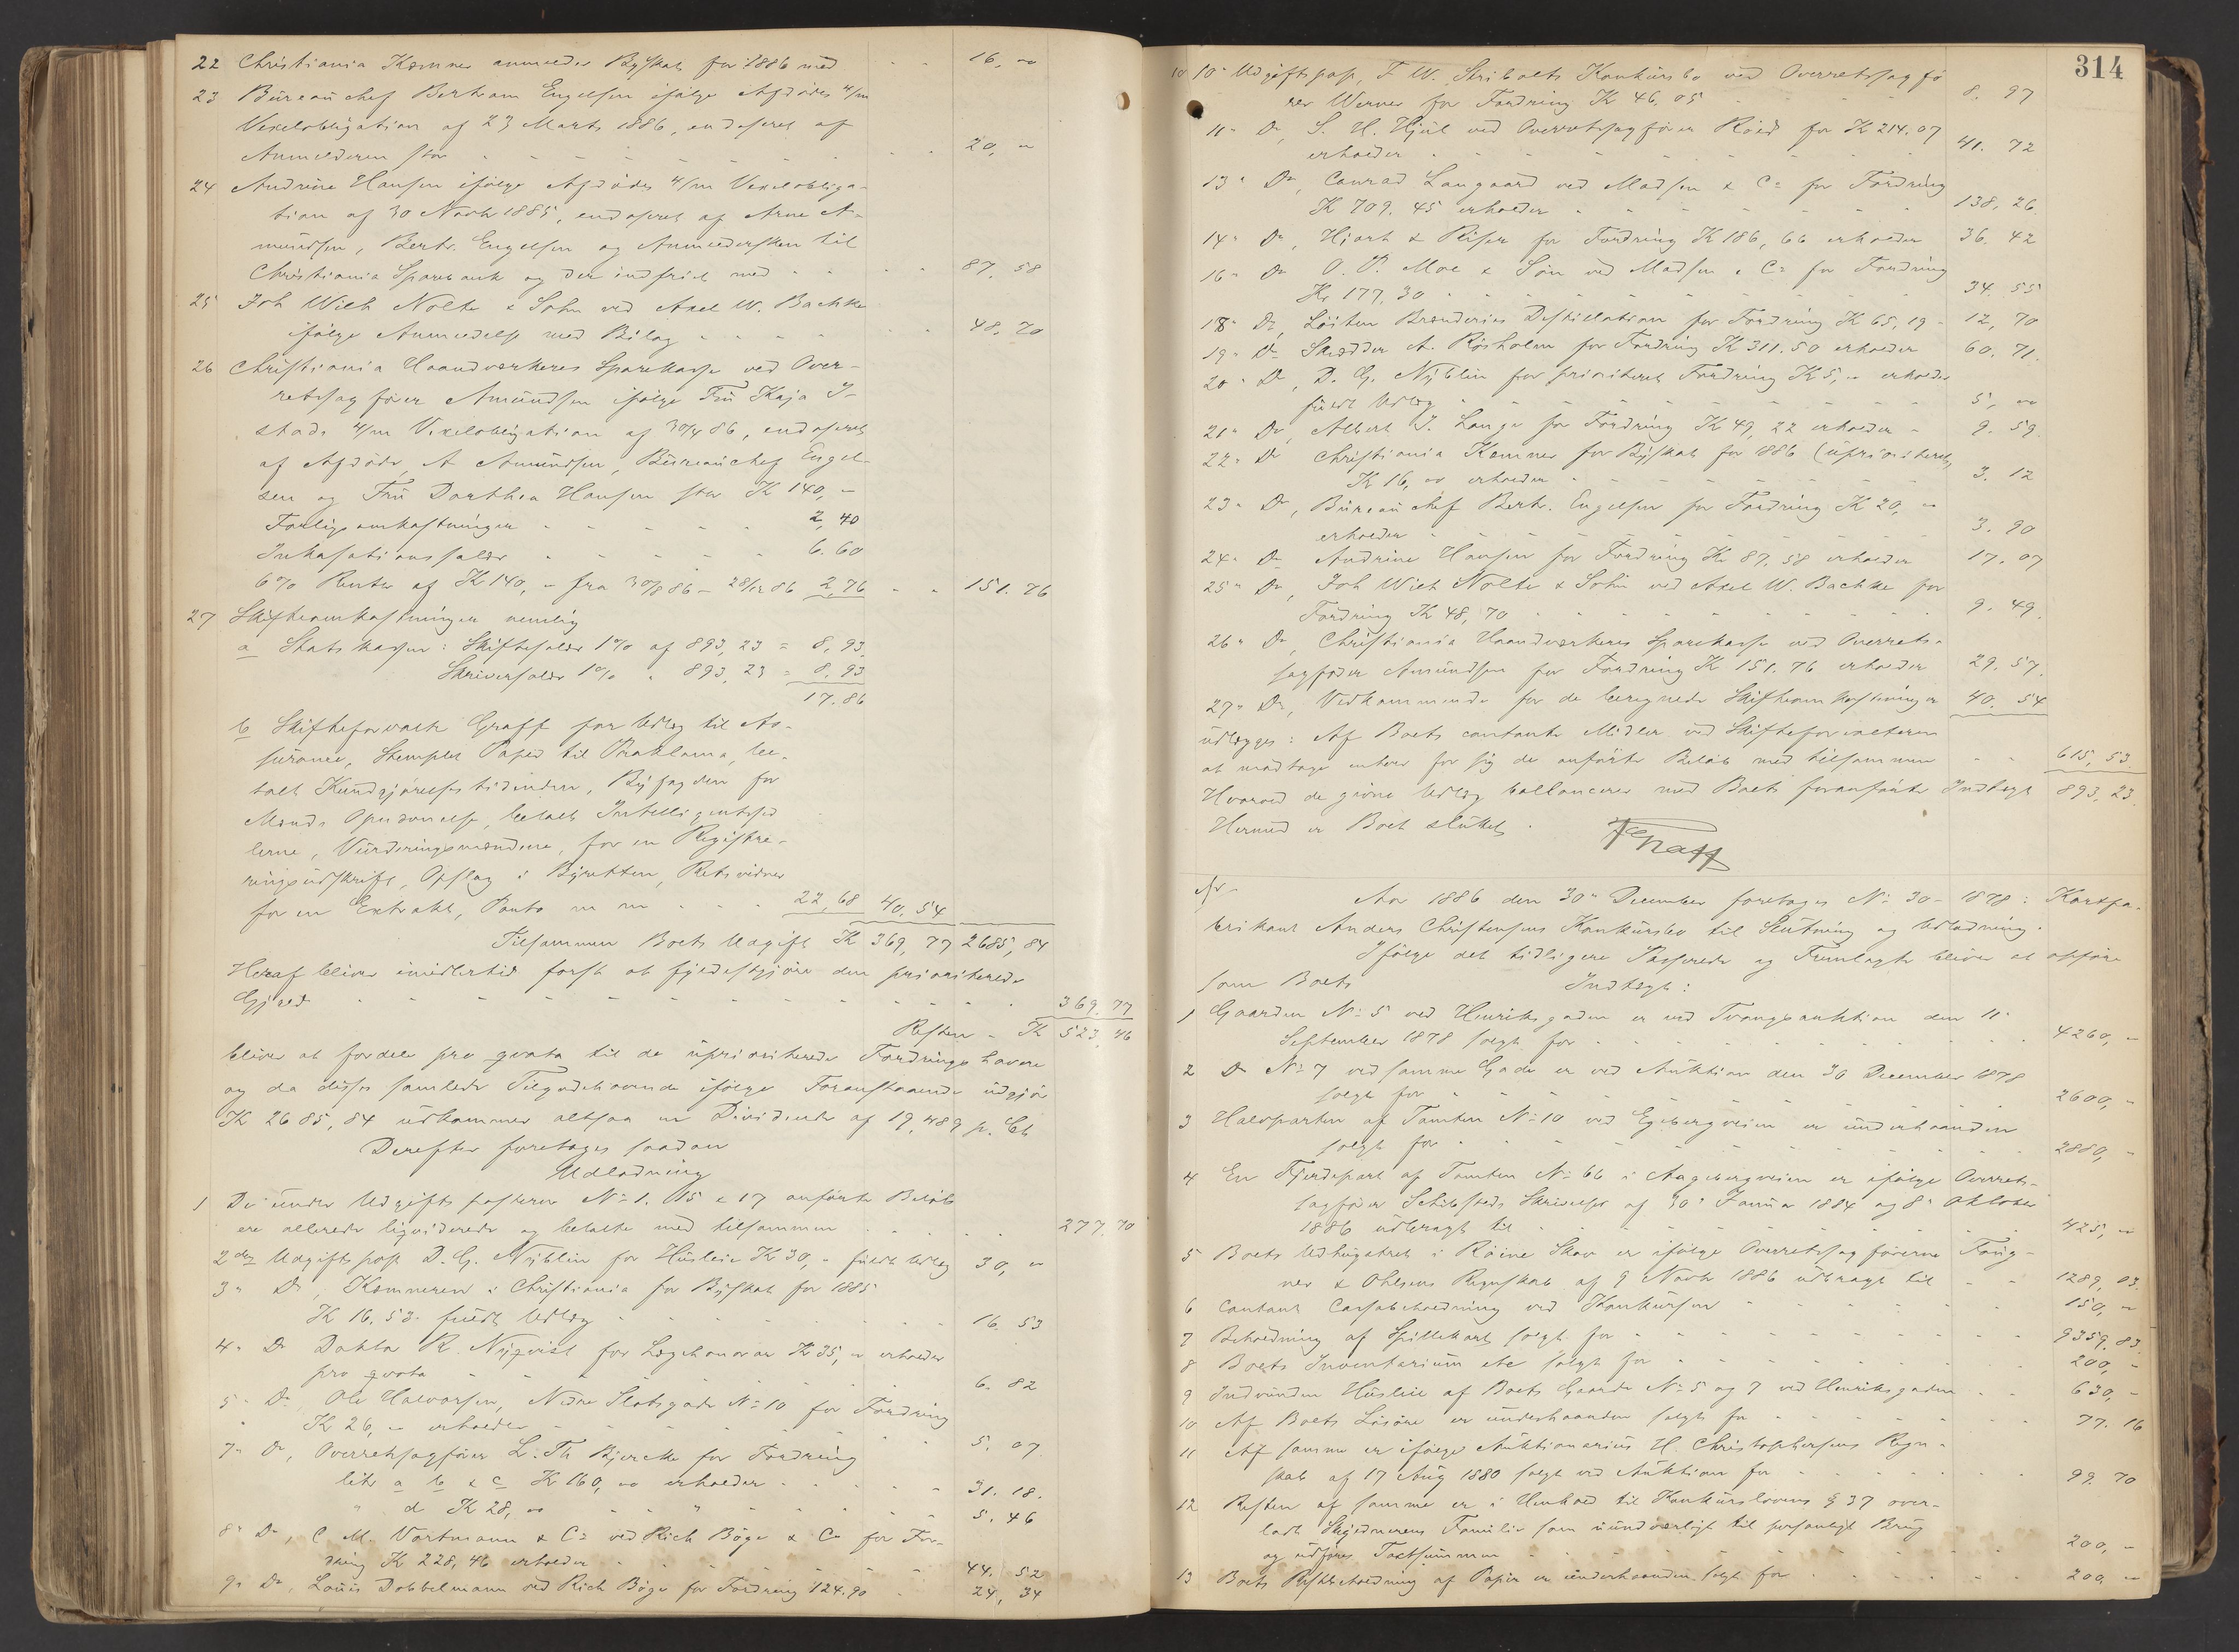 22 Christiania Kæmner anmelder Byskat for 1886 med - - 16, "
23 Bureauchef Bertram Engelsen ifølge Afdødes 4/m
Vexelobligation af 23 Marts 1886, endosseret af
Anmelderen stor - - - 20, "
24 Andrine Hansen ifølge Afdødes 4/m Vexelobliga-
tion af 30 Novbr 1885, endosseret af Arne A-
mundsen, Bertr. Engelsen og Anmeldersken til
Christiania Sparebank og der indfriet med - - - 87. 58
25 Joh Wilh Nolte & Sohn ved Axel W. Bachke
ifølge Anmeldelse med Bilag - - - 48. 70
26 Christiania Haandværkeres Sparekasse ved Over-
retssagfører Amundsen ifølge Fru Kaja I-
stads 4/m Vexelobligation af 30/4 86, endosseret
af Afdøde, A Amundsen, Bureauchef Engel-
sen og Fru Dorthea Hansen stor K 140, -
Forligsomkostninger - - - 2, 40
Inkassationssalær - - - 6. 60
6 % Renter af K 140, - fra 30/8 86 - 28/12 86 2,76 - - 151. 76
27 Skifteomkostninger nemlig
a Statskassen: Skiftesalær 1 % af 893, 23 = 8, 93.
Skriversalær 1 % " 893, 23 = 8, 93
17. 86
b Skifteforvalter Graff for Udlæg til As-
surance, Stemplet Papir til Proklama, be-
talt Kundgjørelsestidenden, Byfogden for
Mænds Opnævnelse, betalt Intelligentssed
lerne, Vurderingsmændene, for en Registre-
ringsudskrift, Opslag i Byretten, Retsvidner
for en Extrakt, Porto m m - - - 22, 68 40, 54
Tilsammen Boets Udgift K 369, 77 2685, 84
Heraf bliver imidlertid først at fyldestgjøre den prioriterede
Gjæld - - - 369. 77
Resten - K 523, 46
bliver at fordele pro qvota til de uprioriterede Fordringshavere
og da disses samlede Tilgodehavende ifølge Foranstaaende udgjør
K 2685, 84 udkommer altsaa en Dividende af 19,489 p. Ct.
Derefter foretoges saadan
Udlodning
1 De under Udgiftsposterne No 1. 15 & 17 anførte Beløb
ere allerede liqviderede og betalte med tilsammen - - - 277. 70
2den Udgiftspost D. G. Nyblin for Husleie K 30, - fuldt Udlæg 30, "
3 " Do, Kæmneren i Christiania for Byskat for 1885
K 16, 53 fuldt Udlæg - - - 16. 53
4 " Do Doktor R. Nyqvist for Lægehonorar K 35, " erholder
pro qvota - - - 6. 82
5 " Do Ole Halvorsen, Nedre Slotsgade No 10 for Fordring
K 26, - erholder - - - 5. 07
7 " Do, Overretssagfører L. Th Bjercke for Fordring
litr a b & c K 160, " erholder - - - 31. 18.
" d K 28, " - - " - - 5. 46
8 " Do, C. M. Vortmann & Co ved Rich Bøge & Co for For-
dring K 228, 46 erholder - - - 44. 52
9 " Do, Louis Dobbelmann ved Rich Bøge for Fordring 124.90 - 24, 34
314
10 10 " Udgiftspost, F. W. Seribolts Konkursbo ved Overretssagfø
rer Werner for Fordring K 46. 05 - - - 8. 97
11 " Do, S. H. Hjul ved Overretssagfører Röed for K 214. 07
erholder - - - 41. 72
13 " Do, Conrad Langaard ved Madsen & Co for Fordring
K 709. 45 erholder - - - 138, 26.
14 " Do, Hjort & Riser for Fordring K 186, 66 erholder 36. 42
16 " Do O. P. Moe & Søn ved Madsen & Co for Fordring
Kr 177, 30 - - - 34. 55
18 " Do, Løiten Brænderies Destillation for Fordring K 65, 19 - 12, 70
19 " Do Skrædder A. Røsholm for Fordring K 311. 50 erholder 60. 71.
20 " Do, D. G. Nyblin for prioriteret Fordring K 5, " erholder
fuldt Udlæg - - - 5, "
21 " Do, Albert J. Lange for Fordring K 49, 22 erholder - 9. 59.
22 " Do Christiania Kæmner for Byskat for 1886 (uprioriteret)
K 16, " erholder - - - 3. 12
23 " Do, Bureauchef Bertr. Engelsen for Fordring K 20, "
erholder - - - 3. 90
24 " Do Andrine Hansen for Fordring Kr 87, 58 erholder 17. 07
25 " Do, Joh Wilh Nolte & Sohn ved Axel W. Bachke for
Fordring K 48, 70 - - - 9. 49.
26 " Do, Christiania Haandværkeres Sparekasse ved Overrets-
sagfører Amundsen for Fordring K 151. 76 erholder 29. 57.
27 " Do, Vedkommende for de beregnede Skifteomkostninger 40. 54
udlægges: Af Boets contante Midler ved Skifteforvalteren
at modtage enhver for sig de anførte Beløb med tilsammen - - 615, 53.
Hvorved de givne Udlæg ballancerer med Boets foranførte Indtægt 893, 23.
Hermed er Boet sluttet.
Graff
Aar 1886 den 30 " December foretoges No 30 - 1878: Kortfa-
brikant Anders Christensens Konkursbo til Slutning og Udlodning.
Ifølge det tidligere Passerede og Fremlagte bliver at opføre
som Boets Indtægt:
1 Gaarden No 5 ved Henriksgaden er ved Tvangsauktion den 11 "
September 1878 solgt for - - - 4260, -
2 Do No 7 ved samme Gade er ved Auktion den 30 December 1878
solgt for - - - 2600, -
3 Halvparten af Tomten No 10 ved Egebergveien er underhaanden
solgt for - - - 2880, -
4 En Fjerdepart af Tomten No 66 i Aagebergveien er ifølge Overrets-
sagfører Schibsteds Skrivelse af 30 " Januar 1884 og 8 " Oktober
1886 udbragt til - - - 425, "
5 Boets Udhugstret i Røine Skov er ifølge Overretssagførerne Faug-
ner & Ohlsens Regnskab af 9 Novbr 1886 udbragt til - - 1289, 03.
6 Contant Cassabeholdning ved Konkursen - - - 150, -
7 Beholdning af Spillekort solgt for - - - 9359, 83.
8 Boets Inventarium etc solgt for - - - 200, -
9 Indvunden Husleie af Boets Gaarde No 5 og 7 ved Henriksgaden - - 630, -
10 Af Boets Løsøre er underhaanden solgt for - - - 77. 16
11 Af samme er ifølge Auktionarius H. Christophersens Regn-
skab af 17 Aug 1880 solgt ved Auktion for - - - 99. 70
12 Resten af samme er i Henhold til Konkurslovens § 37 over-
ladt Skyldnerens Familie som uundværligt til personligt Brug
og udføres Taxtsummen - - - 200, -
13 Boets Restbeholdning af Papir er underhaanden solgt for - - - 200 -